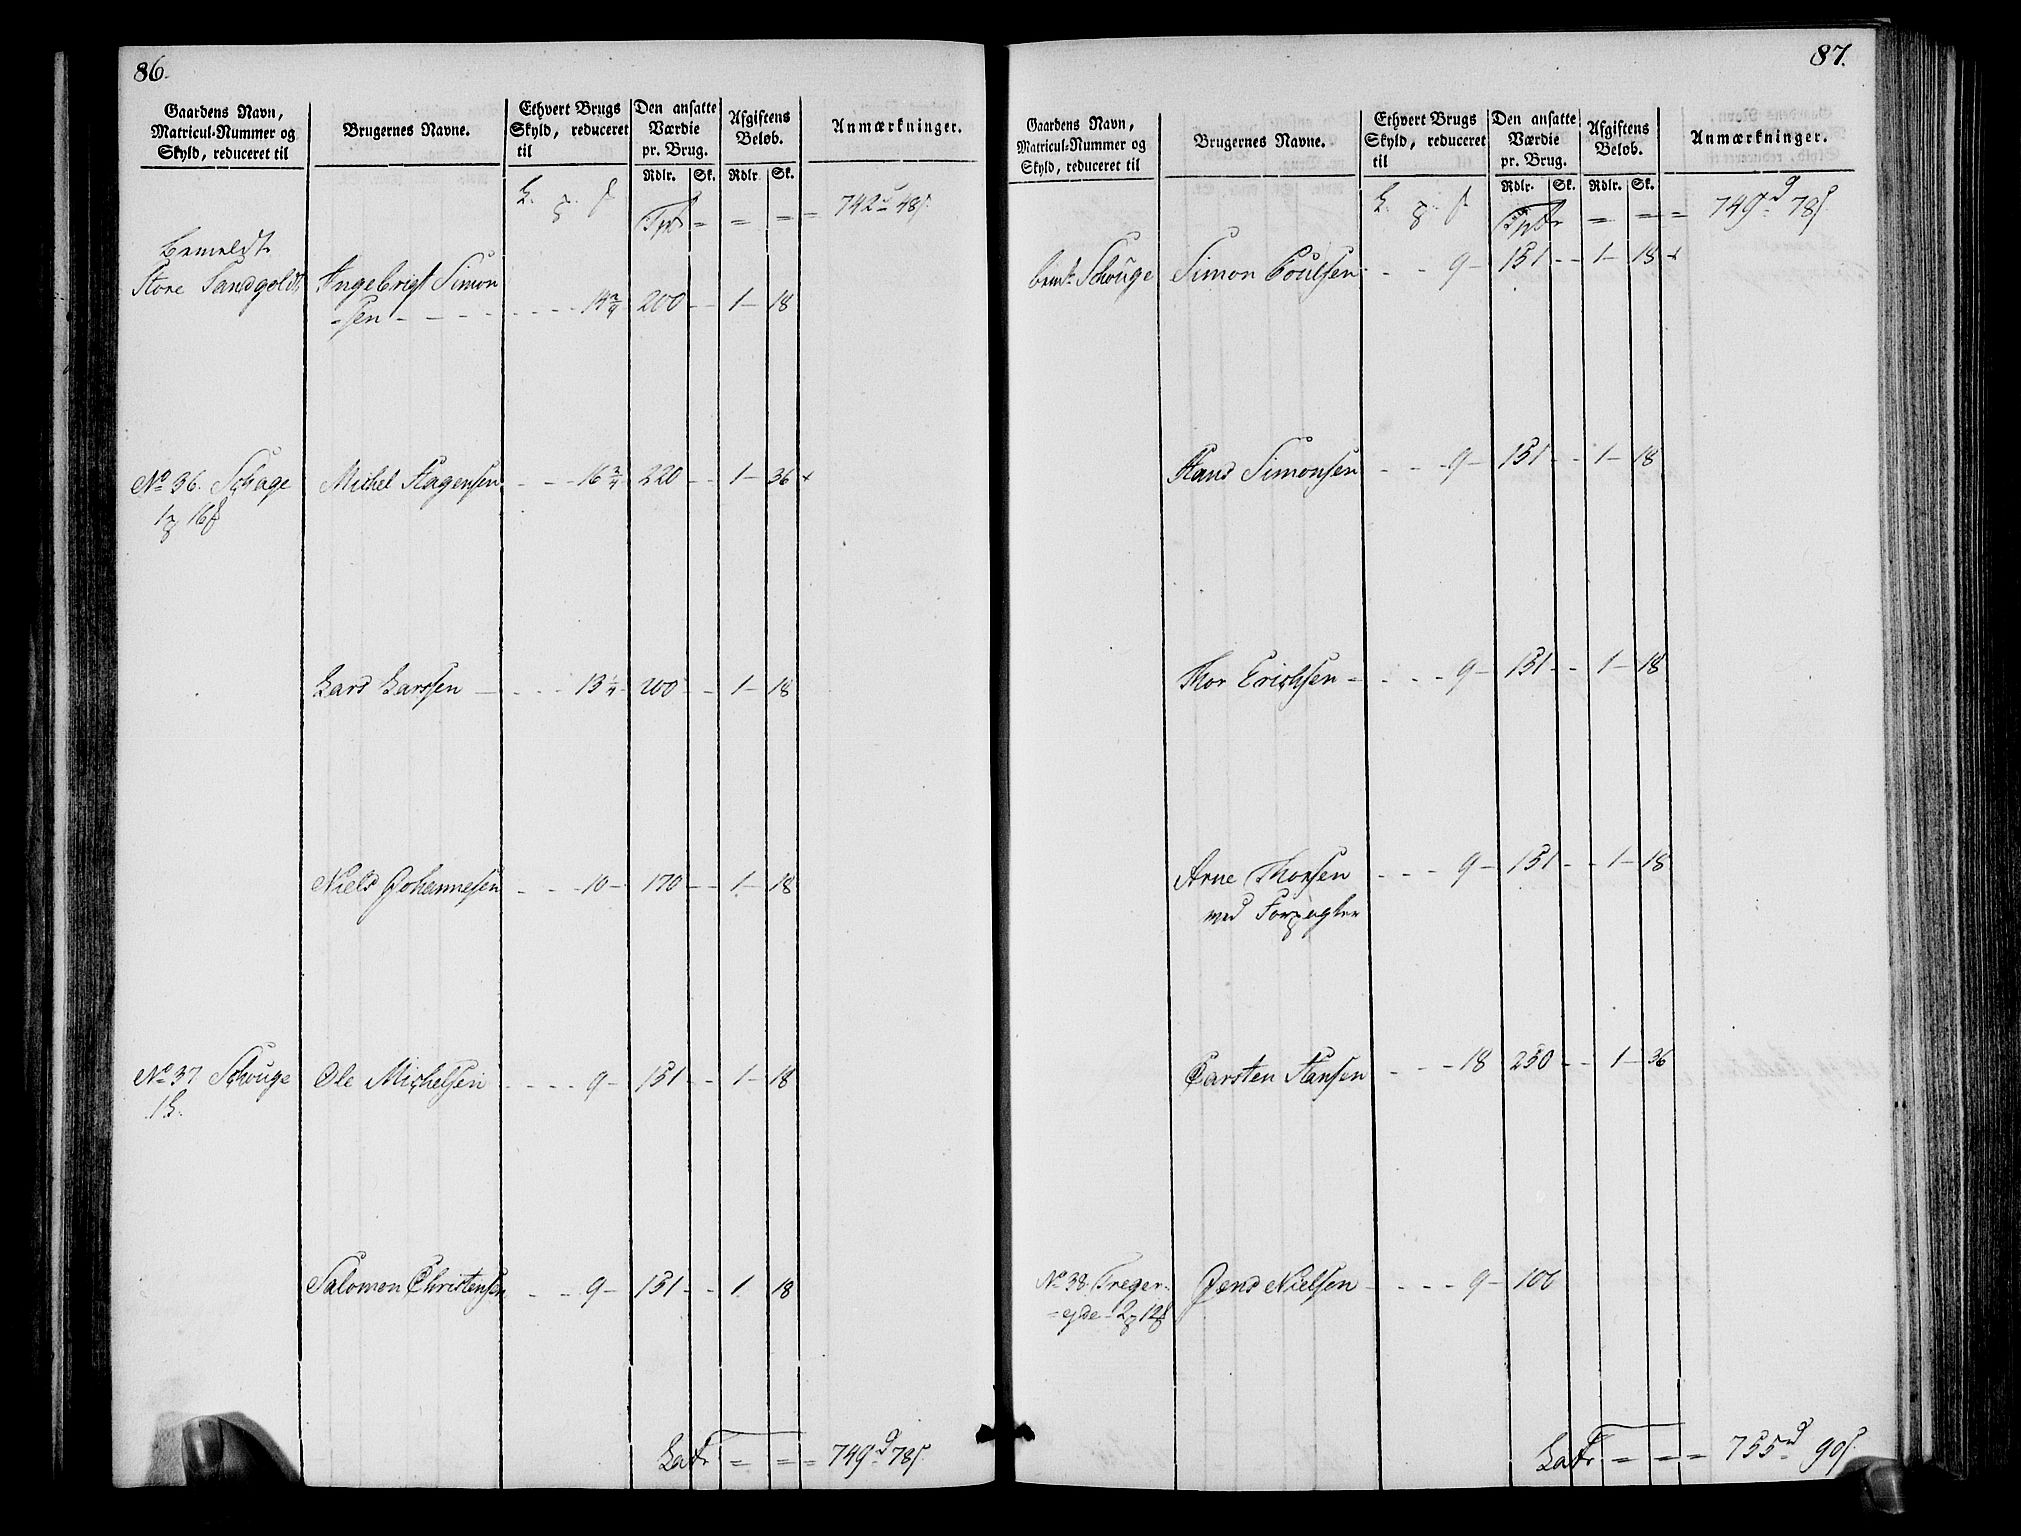 86.
Gaardens Navn,
Matricul-Nummer og
Skyld, reduceret til
Brugernes Navne.
Ethvert Brugs
Skyld, reduceret
til
Den ansatte
Værdie
pr. Brug.
Rdlr. Sk.
Afgiftens
Beløb.
Rdlr. Sk.
Anmærkninger.
Tpt = = = = 742 48
Bemeldt
Store Sandgoldt Ingebrigt Simon
-sen - - - - 200 - - 1 - 18
No 36. Schage Michel Hagensen - - - 16 3/4 220 - - 1 - 36 +
16
Lars Larssen - - - 13 1/4 200 - - 1 - 18
Niels Johannesen - - - 10 - 170 - - 1 - 18
No 37 Schouge Ole Michelsen - - - 9 - 151 - - 1 - 18
1
Salomon Christensen - - - 9 - 151 - - 1 18
Latr = = = 749 78
87.
Gaardens Navn,
Matricul-Nummer og
Skyld, reduceret til
Brugernes Navne.
Ethvert Brugs
Skyld, reduceret
til
Den ansatte
Værdie
pr. Brug.
Rdlr. Sk.
Afgiftens
Beløb.
Rdlr. Sk.
Anmærkninger.
Tpt = = = = 749 78
bemt Schouge Simon Poulsen - - - 9 - 151 - - 1 - 18 +
Hans Simonsen - - - 9 - 151 - - 1 - 18
Thor Erichsen - - - 9 - 151 - - 1 - 18
Arne Thorsen - - - 9 - 151 - - 1 - 18
med Forpagter
Carsten Hansen - - - 18 250 - - 1 - 36
No 38. Treger- Jens Nielsen - - - 9 - 100
=eyde - 2 12
Latr = = = 755 90